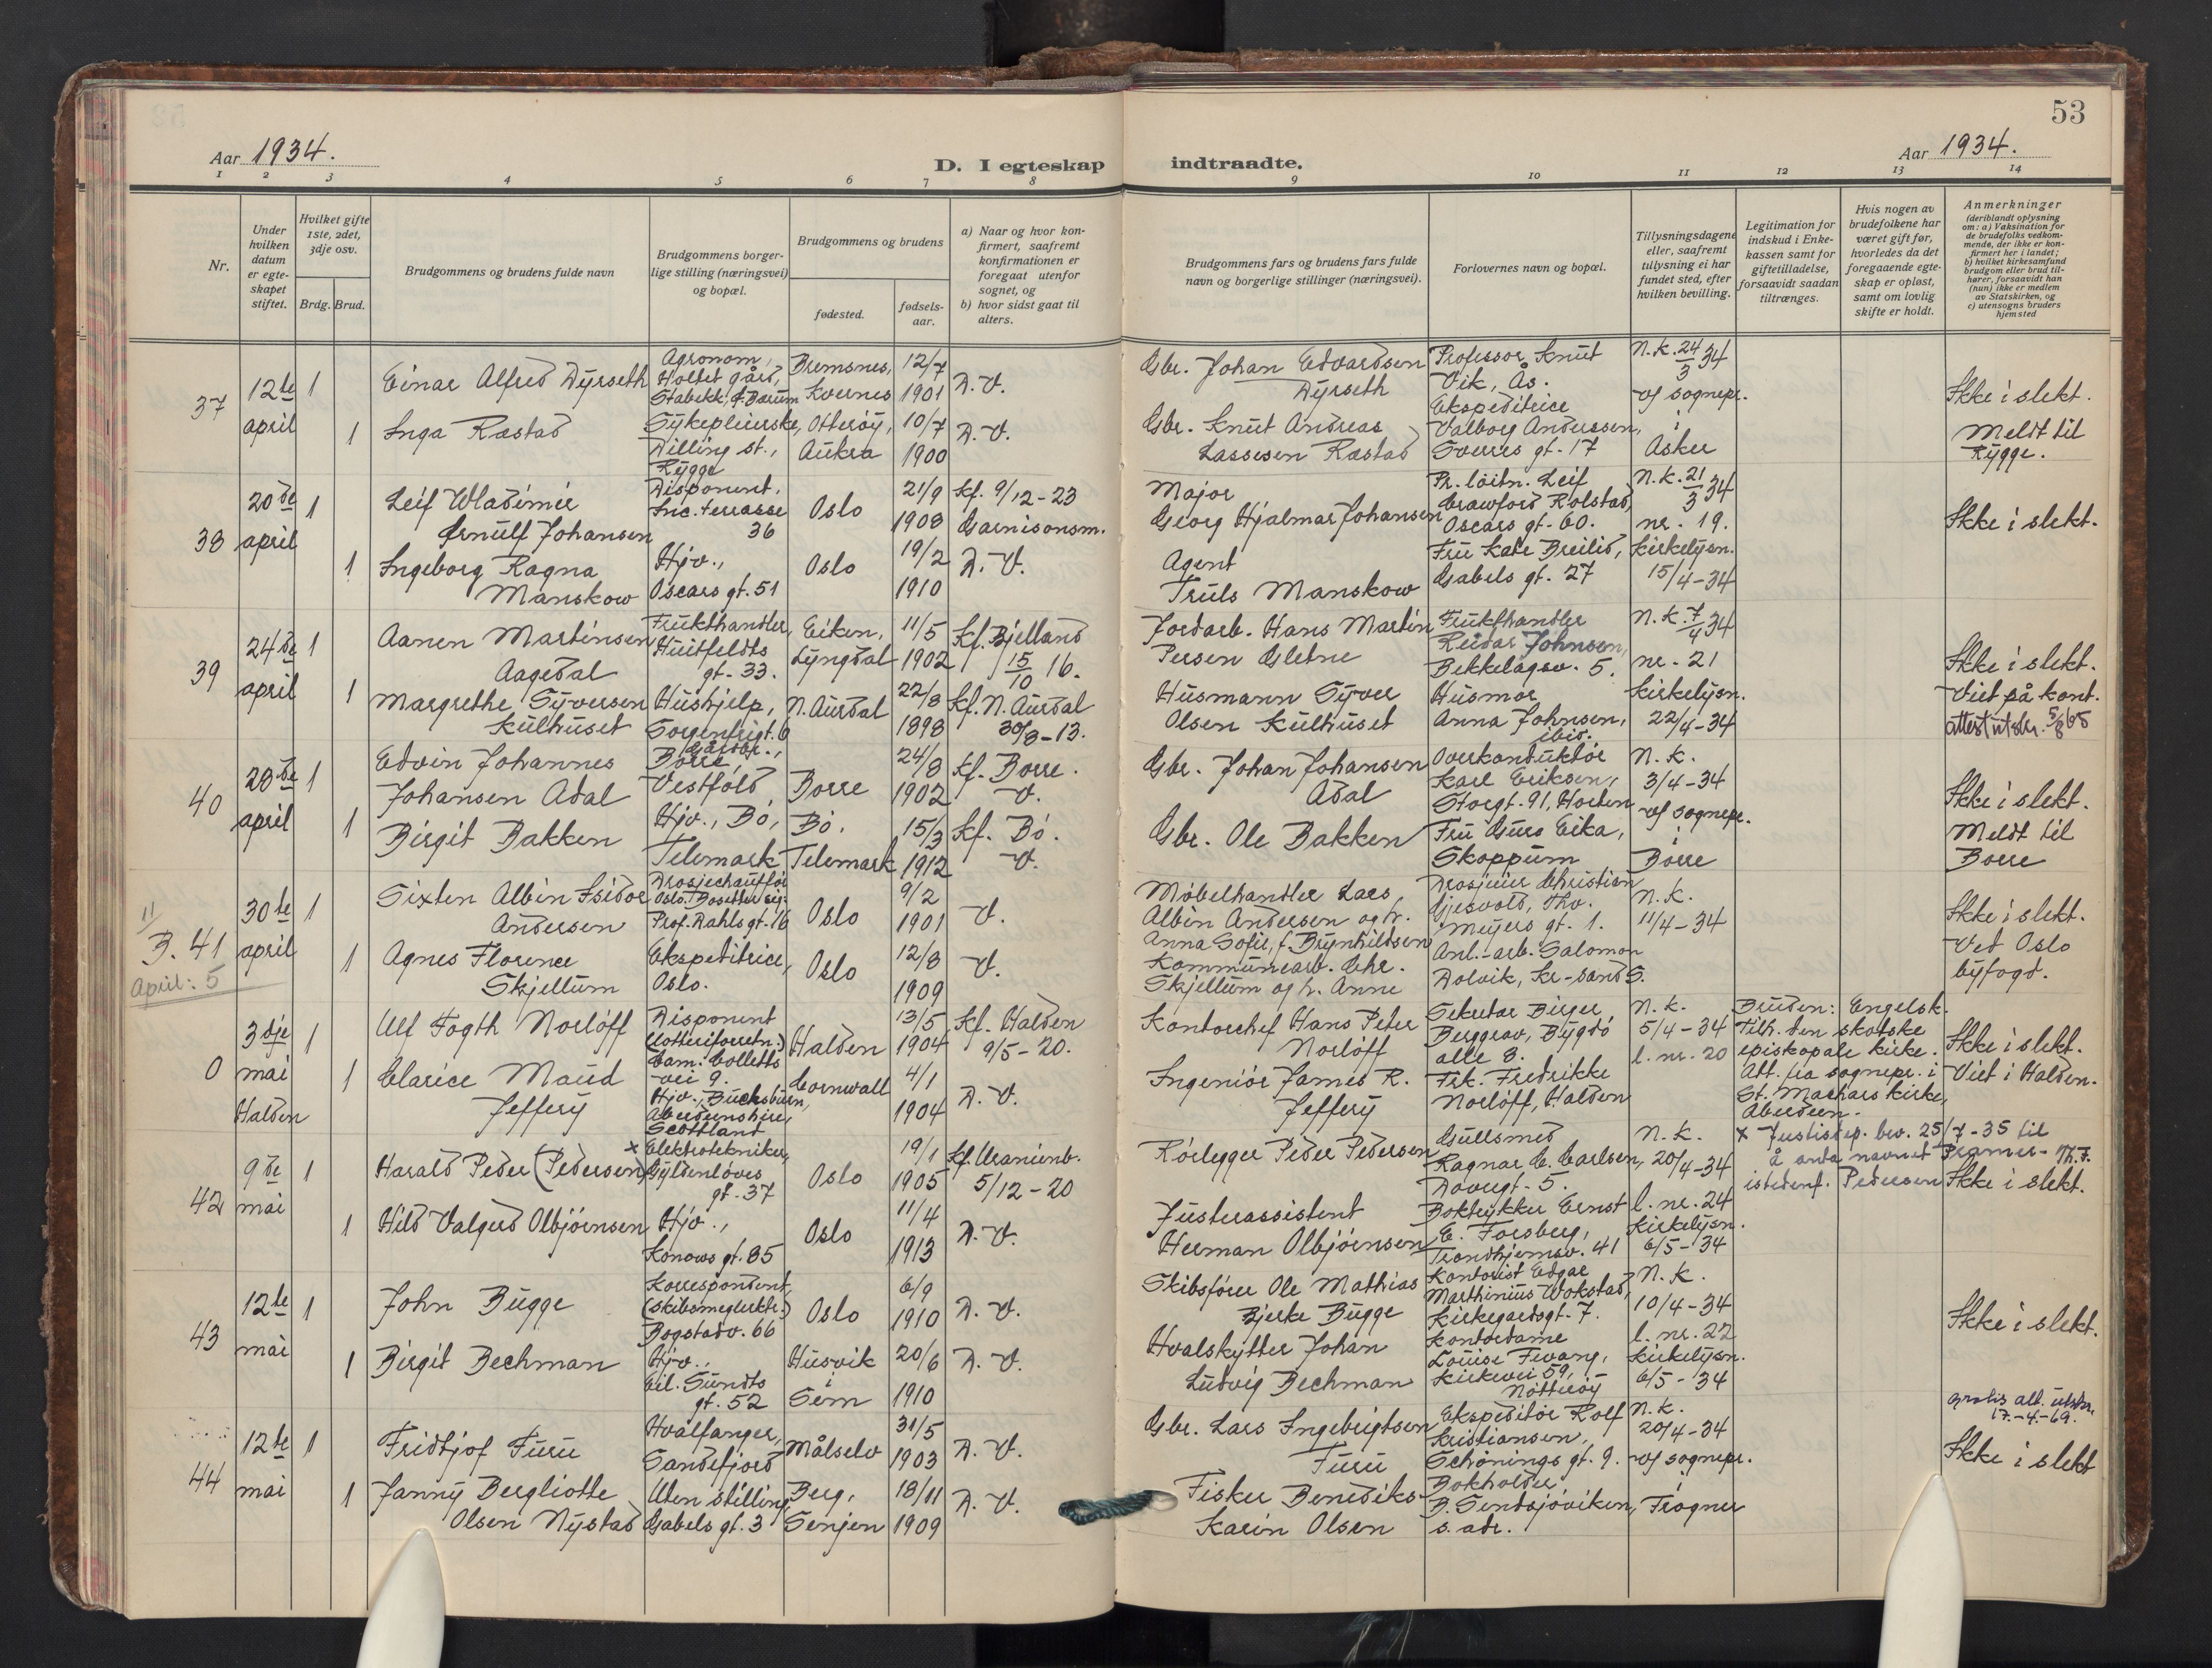 53
Aar 1934.
D. I egteskap indtraadte.
Aar 1934.
1 2 3 4 5 6 7 8 9 10 11 12 13 14
Nr.
Under
hvilken
datum
er egte-
skapet
stiftet.
Hvilket gifte
1ste, 2det,
3dje osv.
Brdg. Brud.
Brudgommens og brudens fulde navn
Brudgommens borger-
lige stilling (næringsvei)
og bopæl.
Brudgommens og brudens
fødested.
fødsels-
aar.
a) Naar og hvor kon-
firmert, saafremt
konfirmationen er
foregaat utenfor
sognet, og
b) hvor sidst gaat til
alters.
Brudgommens fars og brudens fars fulde
navn og borgerlige stillinger (næringsvei).
Forlovernes navn og bopæl.
Tillysningsdagene
eller, saafremt
tillysning ei har
fundet sted, efter
hvilken bevilling.
Legitimation for
indskud i Enke-
kassen samt for
giftetilladelse,
forsaavidt saadan
tiltrænges.
Hvis nogen av
brudefolkene har
været gift før,
hvorledes da det
foregaaende egte-
skap er opløst,
samt om lovlig
skifte er holdt.
Anmerkninger
(deriblandt oplysning
om: a) Vaksination for
de brudefolks vedkom-
mende, der ikke er kon-
firmert her i landet;
b) hvilket kirkesamfund
brudgom eller brud til-
hører, forsaavidt han
(hun) ikke er medlem
av Statskirken, og
c) utensogns bruders
hjemsted
37
12te
april
1
Einar Alfred Dyrseth
Agronom,
Holtet gård,
Stabekk, Bærum
Bremsnes,
Kvernes
12/7
1901
D. V.
Gbr. Johan Edvardsen
Dyrseth
Professor Knut
Vik, Ås.
N.K. 24/3 34
af sognepr.
i
Asker
Ikke i slekt.
Meldt til
Rygge.
1
Inga Ræstad
Sykepleierske,
Dilling st.,
Rygge
Otterøy,
Aukra
10/7
1900
D. V.
Gbr. Knut Andreas
Lassesen Ræstad
Ekspeditrice
Valborg Anderssen,
Sverres gt. 17
38
20de
april
1
Leif Wladimir
Ørnulf Johansen
Disponent,
Inc. terrasse
36
Oslo
21/9
1908
kf. 9/12-23
Garnisonsm.
Major
Georg Hjalmar Johansen
Pr. løitn. Leif
Crawford Rolstad,
Oscars gt. 60.
N.K. 21/3 34
nr. 19.
kirkelysn.
15/4-34
Ikke i slekt.
1
Ingeborg Ragna
Manskow
Hjv.,
Oscars gt. 51
Oslo
19/2
1910
D. V.
Agent
Truls Manskow
Fru Kate Breilid,
Gabels gt. 27
39
24de
april
1
Aanen Martinsen
Aagedal
Frukthandler,
Huitfeldts
gt. 33.
Eiken,
Lyngdal
11/5
1902
Kf. Bjelland
15/10 16.
Jordarb. Hans Martin
Persen Gletne
Frukthandler
Reidar Johnsen,
Bekkelagsv. 5.
N.K. 7/4 34
nr. 21
kirkelysn.
22/4-34
Ikke i slekt.
Viet på kont.
attest utskr. 5/8 65
1
Margrethe Syversen
Kulhuset
Hushjelp,
Sorgenfrigt. 6
N. Aurdal
22/8
1898
Kf. N. Aurdal
30/8-13.
Husmann Syver
Olsen Kulhuset
Husmor
Anna Johnsen,
ibid.
40
28de
april
1
Edvin Johannes
Johansen Adal
Gårdbr.,
Borre,
Vestfold
Borre
24/8
1902
kf. Borre.
V.
Gbr. Johan Johansen
Adal
Overkonduktør
Karl Eriksen,
Storgt. 91, Horten
N.K.
3/4-34
af sognepr.
i
Borre
Ikke i slekt.
Meldt til
Borre
1
Birgit Bakken
Hjv., Bø,
Telemark
Bø.
Telemark
15/3
1912
kf. Bø.
V.
Gbr. Ole Bakken
Fru Guro Eika,
Skoppum
11
B. 41
April: 5
30te
april
1
Sixten Albin Isidor
Andersen
Drosjechauffør
Oslo. Bosetter sig:
Prof. Dahls gt. 16
Oslo
9/2
1901
V.
Møbelhandler Lars
Albin Andersen og h.
Anna Sofie, f. Brynhildsen
Drosjeeier Christian
Gjesvold, Thv.
Meyers gt. 1.
N.K.
11/4-34
Ikke i slekt.
Ved Oslo
byfogd.
1
Agnes Florence
Skjellum
Ekspeditrice,
Oslo.
Oslo
12/8
1909
V.
Kommunearb. Chr.
Skjellum og h. Anne
Anl.-arb. Salomon
Dolvik, Kr-sand S.
0
3dje
mai
Halden
1
Ulf Fogth Norløff
Disponent
(lotteriforretn.)
Cam. Colletts
vei 9.
Halden
13/5
1904
Kf. Halden
9/5-20.
Kontorchef Hans Peter
Norløff
Sekretær Birger
Berggrav, Bygdø
alle 8.
N.K.
5/4-34
l. nr. 20
Bruden: Engelsk.
Tilh. den skotske
episkopale kirke.
Att. fra sognepr. i
St. Machars kirke,
Aberdeen.
Ikke i slekt.
Viet i Halden.
1
Clarice Maud
Jeffery
Hjv., Bucksburn,
Aberdeenshire,
Scottland
Cornwall
4/1
1904
D. V.
Ingeniør James R.
Jeffery
Frk. Fredrikke
Norløff, Halden
42
9de
mai
1
Harald Peder (Pedersen) x
Elektrotekniker,
Gyldenløves
gt. 37
Oslo
19/1
1905
Kf. Uranienb.
5/12-20
Rørlegger Peder Pedersen
Gullsmed
Ragnar C. Carlsen,
Dovregt. 5.
N.K.
20/4-34
l. nr. 24
kirkelysn.
6/5-34
x Justisdep. bev. 25/7-35 til
å anta navnet Pramer- Th.F.
istedenf. Pedersen
Ikke i slekt.
1
Hild Valgerd Olbjørnsen
Hjv.,
Konows gt. 85
Oslo
11/4
1913
D. V.
Justerassistent
Herman Olbjørnsen
Boktrykker Ernst
E. Forsberg,
Trondhjemsv. 41
43
12te
mai
1
John Bugge
Korrespondent,
(skibsmeglerktr.)
Bogstadv. 66
Oslo
6/9
1910
D. V.
Skibsfører Ole Mathias
Bjerke Bugge
Kontorist Edgar
Marthinius Wokstad,
Kirkegaardsgt. 7.
N.K.
10/4-34
l. nr. 22
kirkelysn.
6/5-34
Ikke i slekt.
1
Birgit Bechman
Hjv.,
Eil. Sundts
gt. 52
Husvik
i
Sem
20/6
1910
D. V.
Hvalskytter Johan
Ludvig Bechman
Kontordame
Louise Fevang,
Kirkevei 59,
Nøtterøy
44
12te
mai
1
Fridtjof Furu
Hvalfanger,
Sandefjord
Målselv
31/5
1903
D. V.
Gbr. Lars Ingebrigtsen
Furu
Ekspeditør Rolf
Kristiansen,
Schønings gt. 9.
N.K.
20/4-34
af sognepr.
i
Frogner
gratis att. utskr.
17.-4.-69.
Ikke i slekt
1
Janny Bergliotte
Olsen Nystad
Uten stilling
Gabels gt. 3
Berg,
Senjen
18/11
1909
D. V.
Fisker Benediks
Karin Olsen
Bokholder
B. Sendsjøviken,
s. adr.